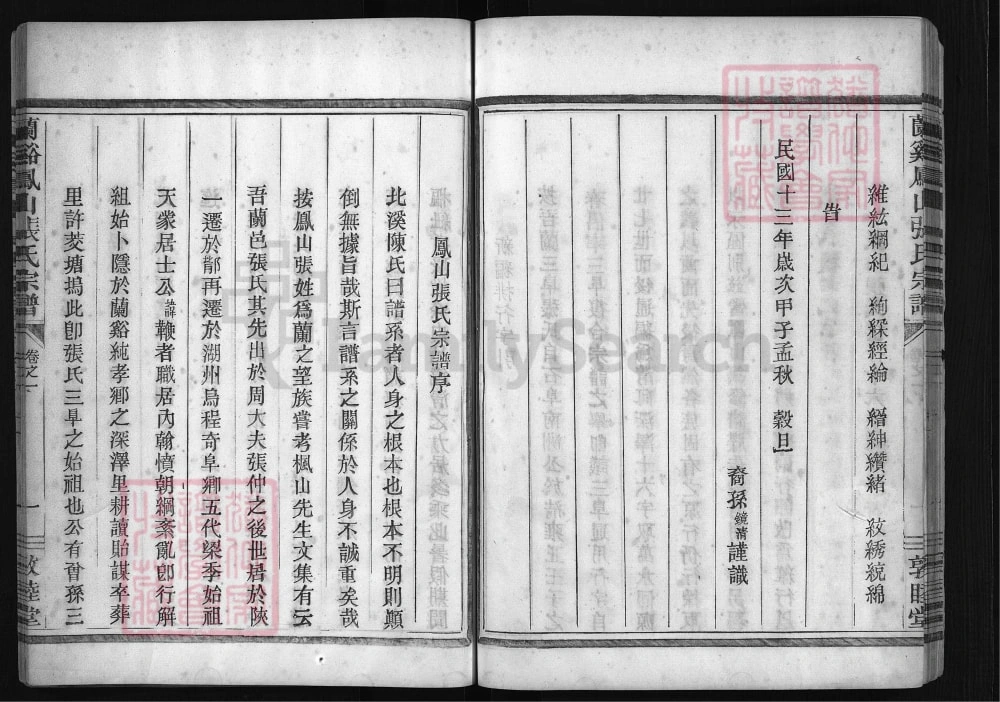 維紘綱紀 絢綵經綸 縉紳纘緒 紋綉統綿
時
民國十三年歲次甲子孟秋 穀旦
裔孫鏡清謹識
蘭谿鳳山張氏宗譜 卷之一 一 敦睦堂
鳳山張氏宗譜序
北溪陳氏曰譜系者人身之根本也根本不明則顛
倒無據旨哉斯言譜系之關係於人身不誠重矣哉
按鳳山張姓爲蘭之望族嘗考楓山先生文集有云
吾蘭邑張氏其先出於周大夫張仲之後世居於陝
一遷於鄁再遷於湖州烏程奇阜鄉五代梁季始祖
天象居士公諱鞭者職居內翰憤朝綱紊亂卽行解
組始卜隱於蘭谿純孝鄉之深澤里耕讀貽謀卒葬
里許菱塘塢此卽張氏三阜之始祖也公有曾孫三
蘭谿鳳山張氏宗譜 卷之一 一 敦睦堂
FamilySearch